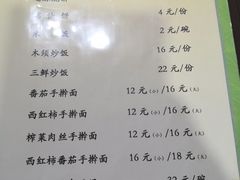 4 元/份
2 元/碗
木须炒饭 16 元/份
三鲜炒饭 22 元/份
番茄手擀面 12 元 (小) /16 元 (大)
西红柿手擀面 12 元 (小) /16 元 (大)
榨菜肉丝手擀面 12 元 (小) /16 元 (大)
西红柿番茄手擀面 16 元 (小) /18 元 (大)
元/碗